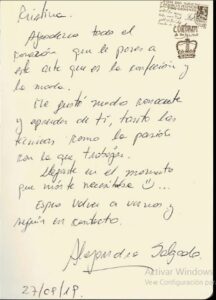 Cristina,
Agradezco todo el
corazón que le pones a
este arte que es la confección y
la moda.
Me gustó mucho conocerte
y aprender de ti, tanto las
técnicas como la pasión
con la que trabajas.
Llegaste en el momento
que más te necesitaba
Espero volver a vernos y
seguir en contacto.
Alejandra Salgado
27/09/19.
Activar Windows
Ve a Configuración par